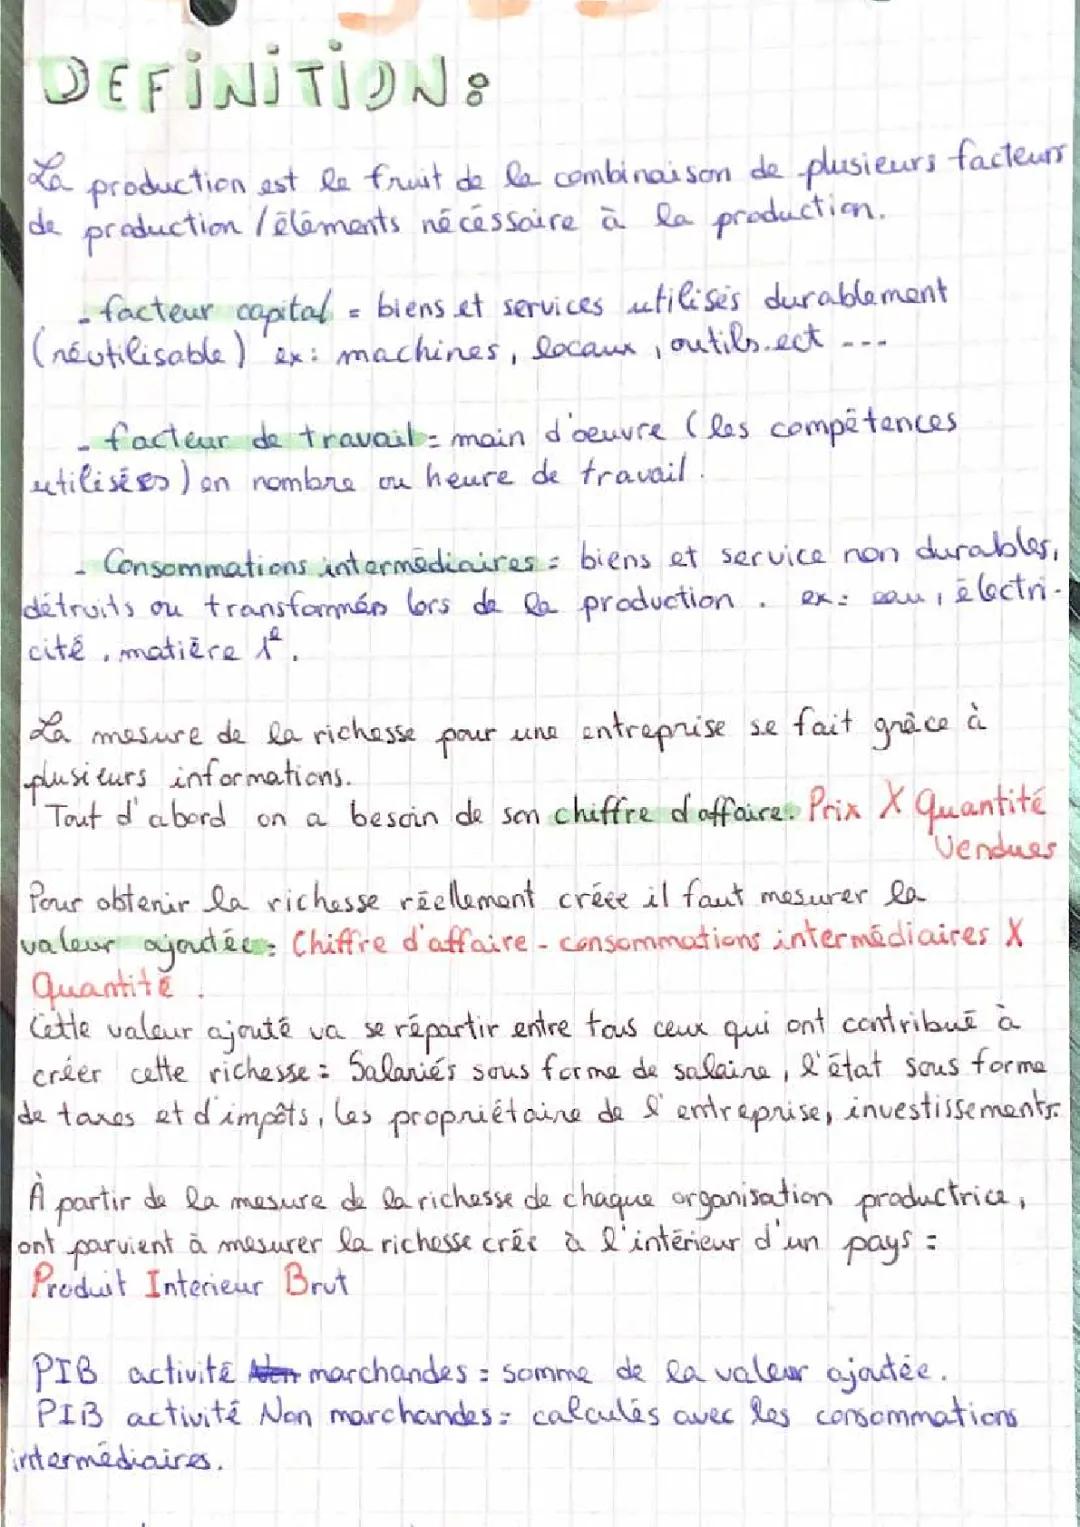 DEFINITION :
La production est le fruit de la combinaison de plusieurs facteurs
de production / éléments nécéssaire à la production.
- facteur capital = biens et services utilisés durablement
(réutilisable) ex : machines, locaux, outils.ect ---
- facteur de travail = main d'oeuvre (les compétences
utilisées) en nombre ou heure de travail.
- Consommations intermédiaires = biens et service non durables,
détruits ou transformés lors de la production. ex : eau, électri-
cité, matière 1e.
La mesure de la richesse pour une entreprise se fait grâce à
plusieurs informations.
Tout d'abord on a besoin de son chiffre d'affaire. Prix X Quantité
Vendues
Pour obtenir la richesse réellement créée il faut mesurer la
valeur ajoutée : Chiffre d'affaire - consommations intermédiaires X
Quantité.
Cette valeur ajouté va se répartir entre tous ceux qui ont contribué à
créer cette richesse : Salariés sous forme de salaire, l'état sous forme
de taxes et d'impôts, les propriétaire de l'entreprise, investissements.
À partir de la mesure de la richesse de chaque organisation productrice,
ont parvient à mesurer la richesse créé à l'intérieur d'un pays =
Produit Interieur Brut
PIB activité marchandes = somme de la valeur ajoutée.
PIB activité Non marchandes = calculés avec les consommations
intermédiaires.